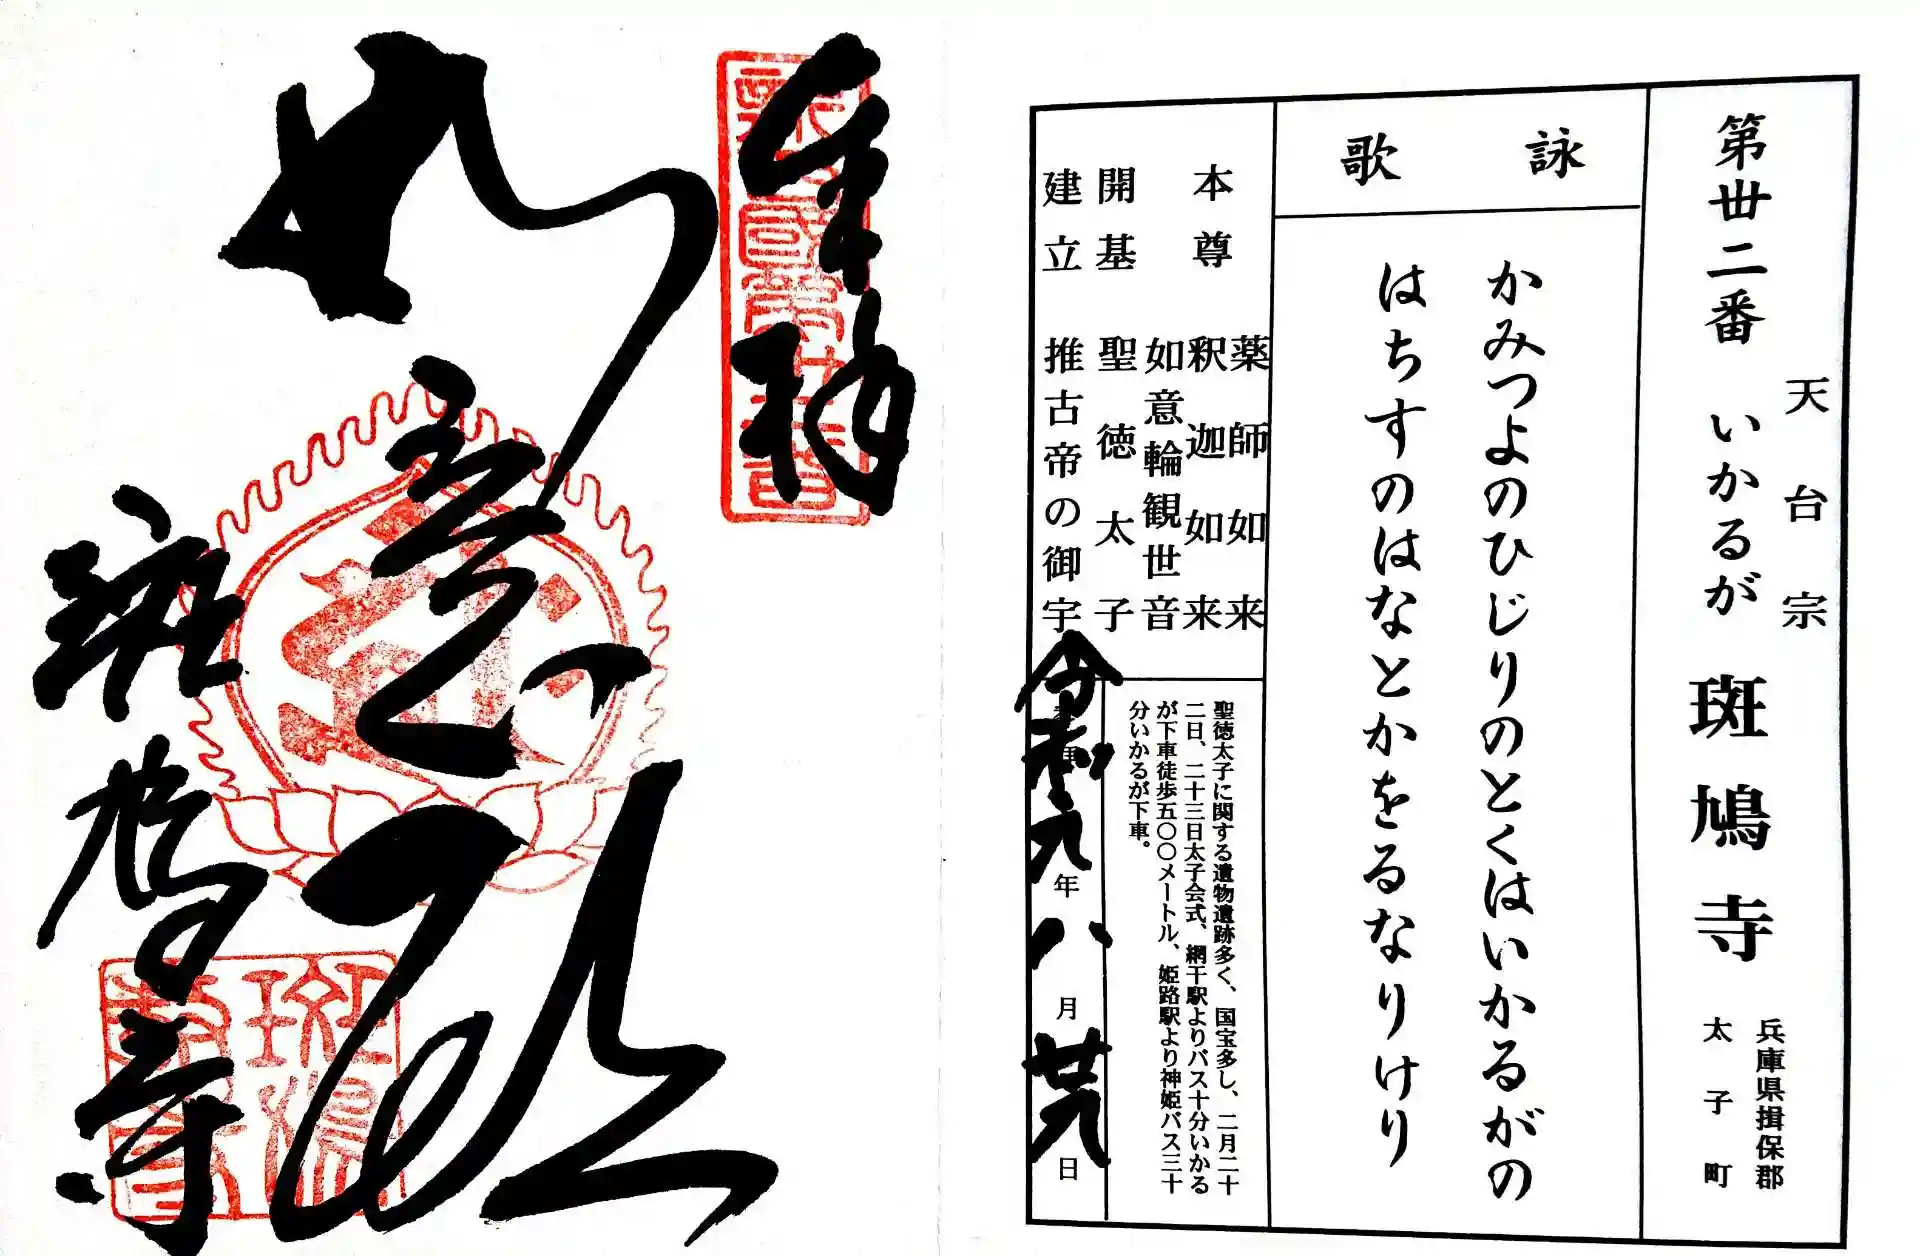 天台宗
第丗二番 いかるが 斑鳩寺
兵庫県揖保郡
太子町
詠歌
かみつよのひじりのとくはいかるがの
はちすのはなとかをるなりけり
本尊 薬師如来
釈迦如来
如意輪観世音
開基 聖徳太子
建立 推古帝の御宇
聖徳太子に関する遺物遺跡多く、国宝多し、二月二十
二日、二十三日太子会式、網干駅よりバス十分いかる
が下車徒歩五〇〇メートル、姫路駅より神姫バス三十
分いかるが下車。
令和元年八月廿九日
奉拝
如意輪
斑鳩寺
斑鳩